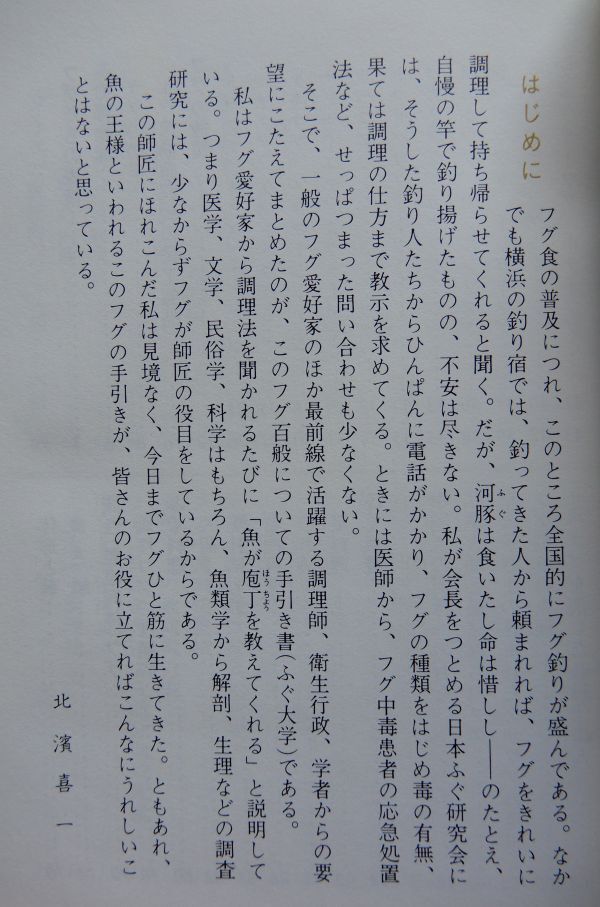 はじめに
フグ食の普及につれ、このところ全国的にフグ釣りが盛んである。なか
でも横浜の釣り宿では、釣ってきた人から頼まれれば、フグをきれいに
調理して持ち帰らせてくれると聞く。だが、河豚は食いたし命は惜しし――のたとえ、
自慢の竿で釣り揚げたものの、不安は尽きない。私が会長をつとめる日本ふぐ研究会に
は、そうした釣り人たちからひんぱんに電話がかかり、フグの種類をはじめ毒の有無、
果ては調理の仕方まで教示を求めてくる。ときには医師から、フグ中毒患者の応急処置
法など、せっぱつまった問い合わせも少なくない。
そこで、一般のフグ愛好家のほか最前線で活躍する調理師、衛生行政、学者からの要
望にこたえてまとめたのが、このフグ百般についての手引き書(ふぐ大学)である。
私はフグ愛好家から調理法を聞かれるたびに「魚が庖丁を教えてくれる」と説明して
いる。つまり医学、文学、民俗学、科学はもちろん、魚類学から解剖、生理などの調査
研究には、少なからずフグが師匠の役目をしているからである。
この師匠にほれこんだ私は見境なく、今日までフグひと筋に生きてきた。ともあれ、
魚の王様といわれるこのフグの手引きが、皆さんのお役に立てればこんなにうれしいこ
とはないと思っている。
北濱喜一